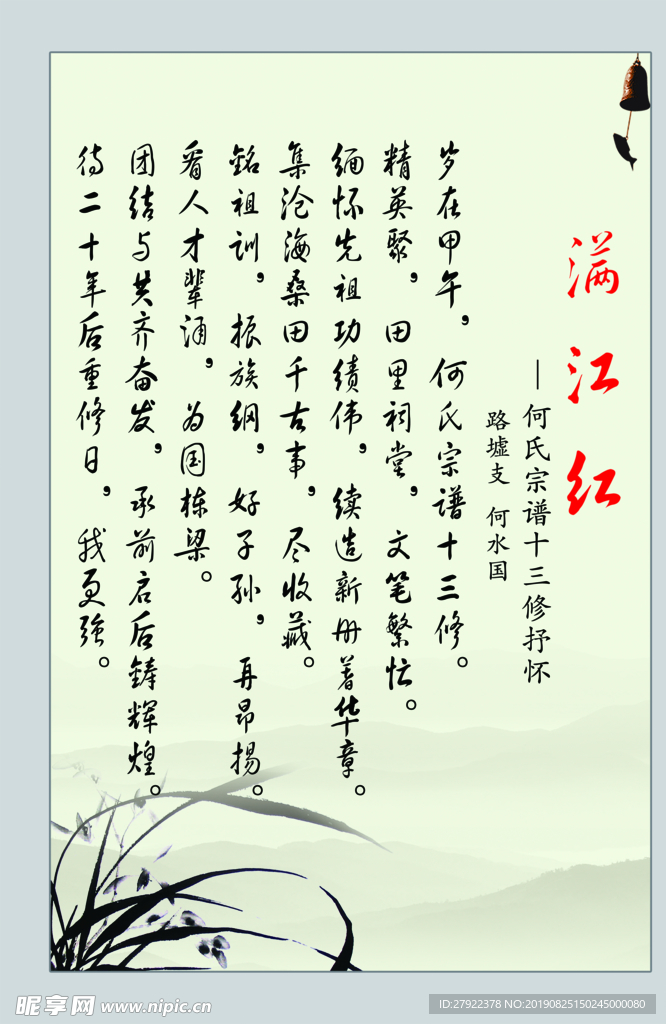 满江红
—何氏宗谱十三修抒怀
路墟支 何水国
岁在甲午，何氏宗谱十三修。
精英聚，田里祠堂，文笔繁忙。
缅怀先祖功绩伟，续造新册着华章。
集沧海桑田千古事，尽收藏。
銘祖训，振族纲，好子孙，再昂揚。
看人才辈涌，为国栋梁。
团结与共齐奋发，承前启后鋳辉煌。
待二十年后重修日，我更强。
昵享网 www.nipic.cn
ID:27922378 NO:20190825150245000080